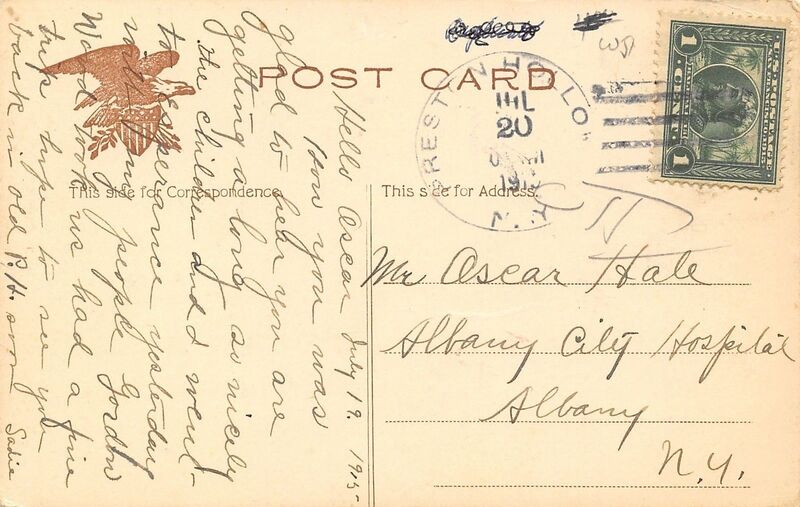 POST CARD
This side for Correspondence.
This side for Address.
PRESTON HOLLOW
JUL
20
191
N.Y.
1
1
Hello Oscar July 19. 1915
How you was
glad to hear you are
getting a long so nicely
the children and I went
to Esperance yesterday
with my people Gordon
Wood took us had a fine
trip hope to see you
back in old P. H. soon
Sadie
Mr Oscar Hale
Albany City Hospital
Albany
N.Y.